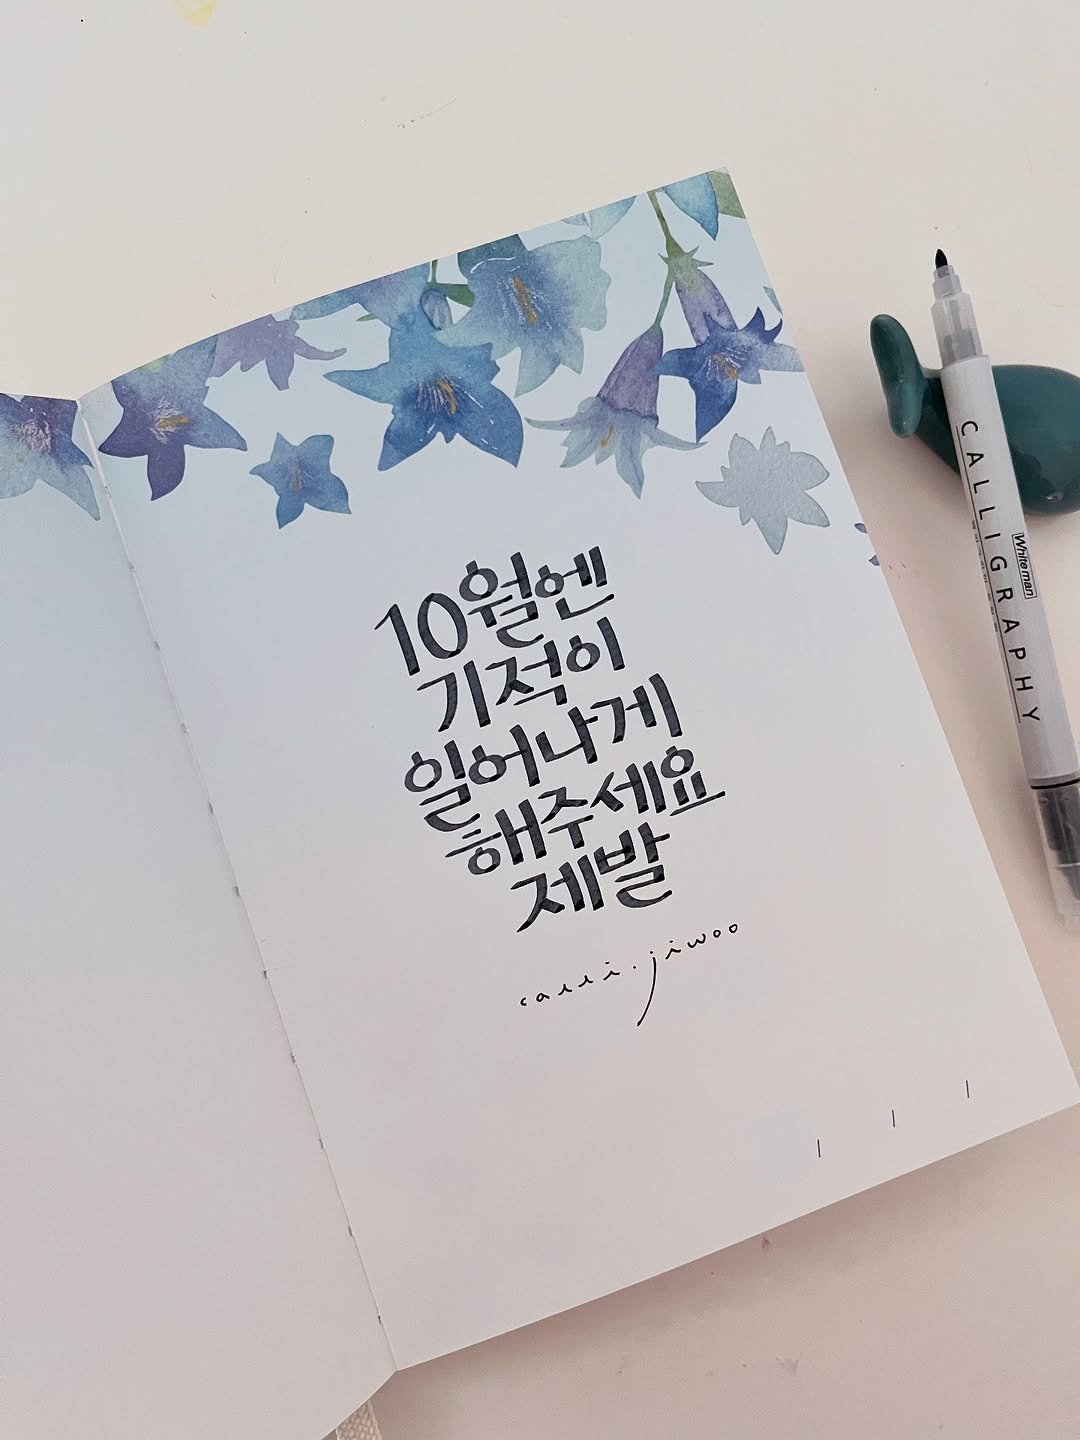 10월엔
기적이
일어나게
해주세요
제발
calli.jiwoo
CALLIGRAPHY
Whiteman